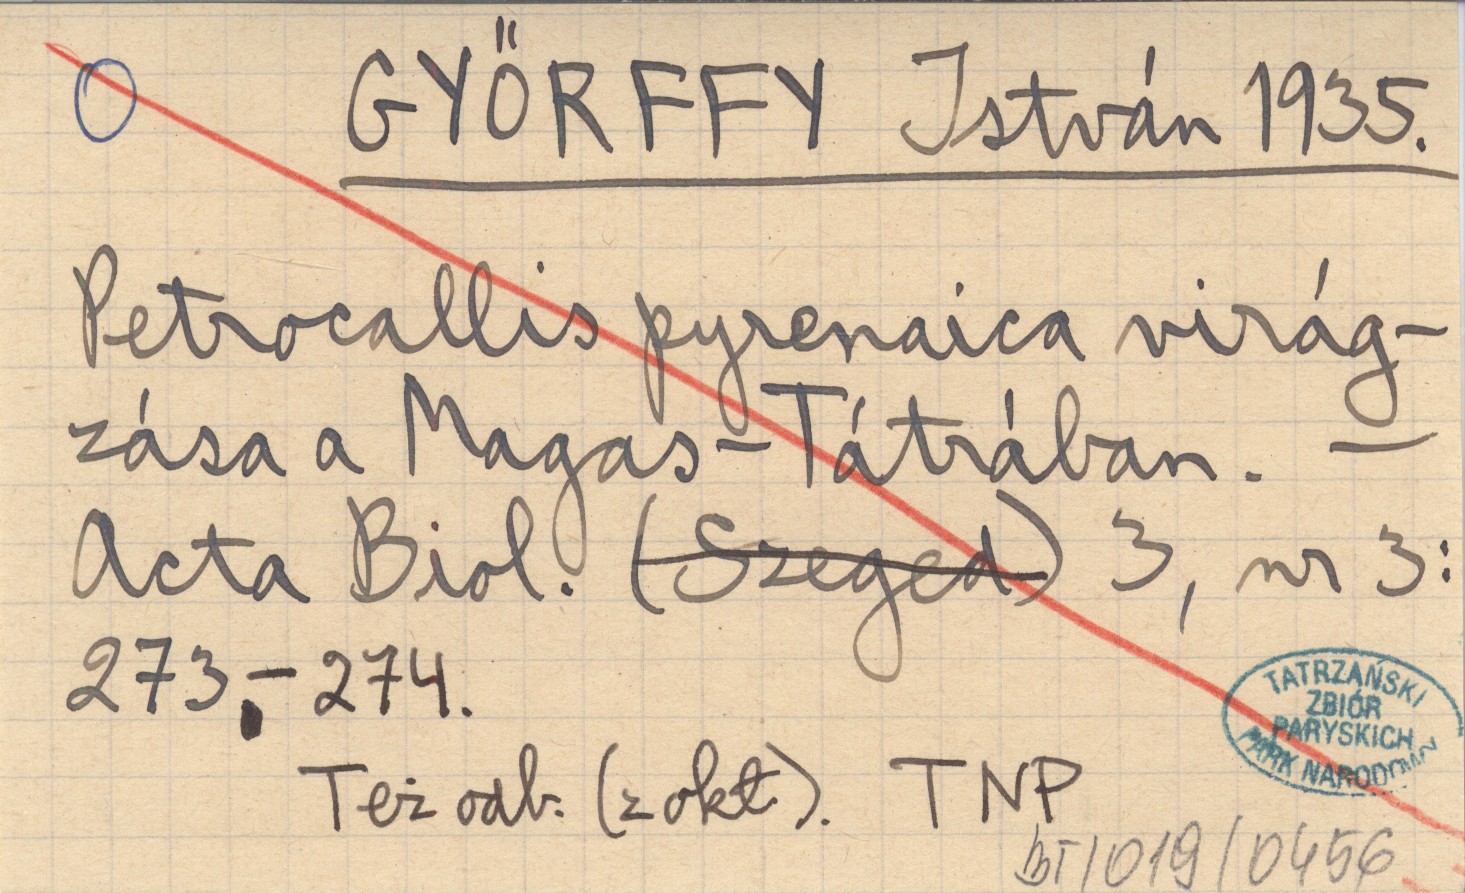 GYŐRFFY István 1935.
Petrocallis pyrenaica virág-
zása a Magas-Tátrában. —
Acta Biol. (Szeged) 3, nr 3:
273.-274.
Też odb. (z okł.). TNP
TATRZAŃSKI
ZBIÓR
PARYSKICH
PARK NARODOWY
BT/019/0456